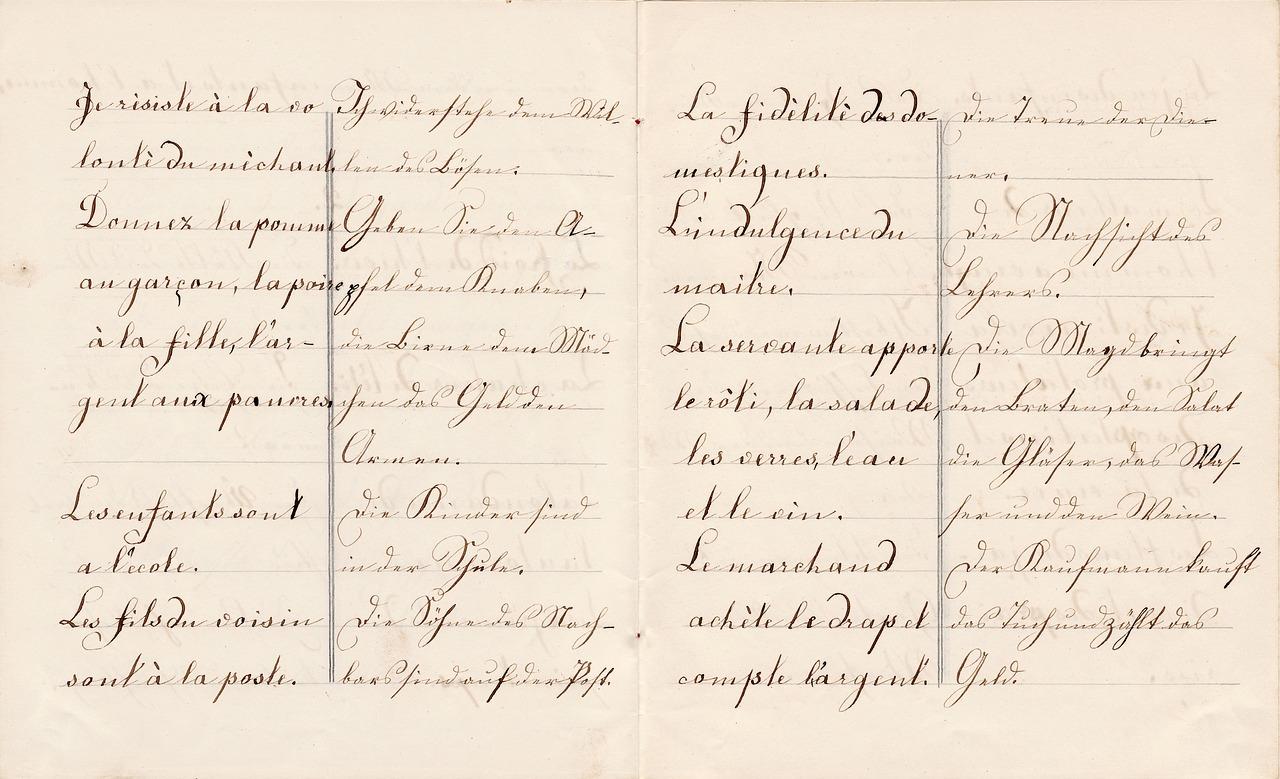 Je risiste à la vo
lontè du mèchant.
Donnez la pomme
au garçon, la poire
à la fille, l'ar-
gent aux pauvres.
Les enfants sont
a l'ècole.
Les fils du voisin
sont à la poste.
Ich widerstehe dem Wil-
len des Bösen.
Geben Sie den A-
pfel dem Knaben,
die Birne dem Mäd-
chen das Geld den
Armen.
Die Kinder sind
in der Schule.
Die Söhne des Nach-
bars sind auf der Post.
La fidèlitè des do-
mestiques.
L'indulgence du
maitre.
La servante apporte
le rôti, la salade,
les verres, l'eau
et le vin.
Le marchand
achète le drap et
compte l'argent.
Die Treue der Die-
ner.
Die Nachsicht des
Lehrers.
Die Magd bringt
den Braten, den Salat
die Gläser, das Was-
ser und den Wein.
Der Kaufmann kauft
das Tuch und zählt das
Geld.